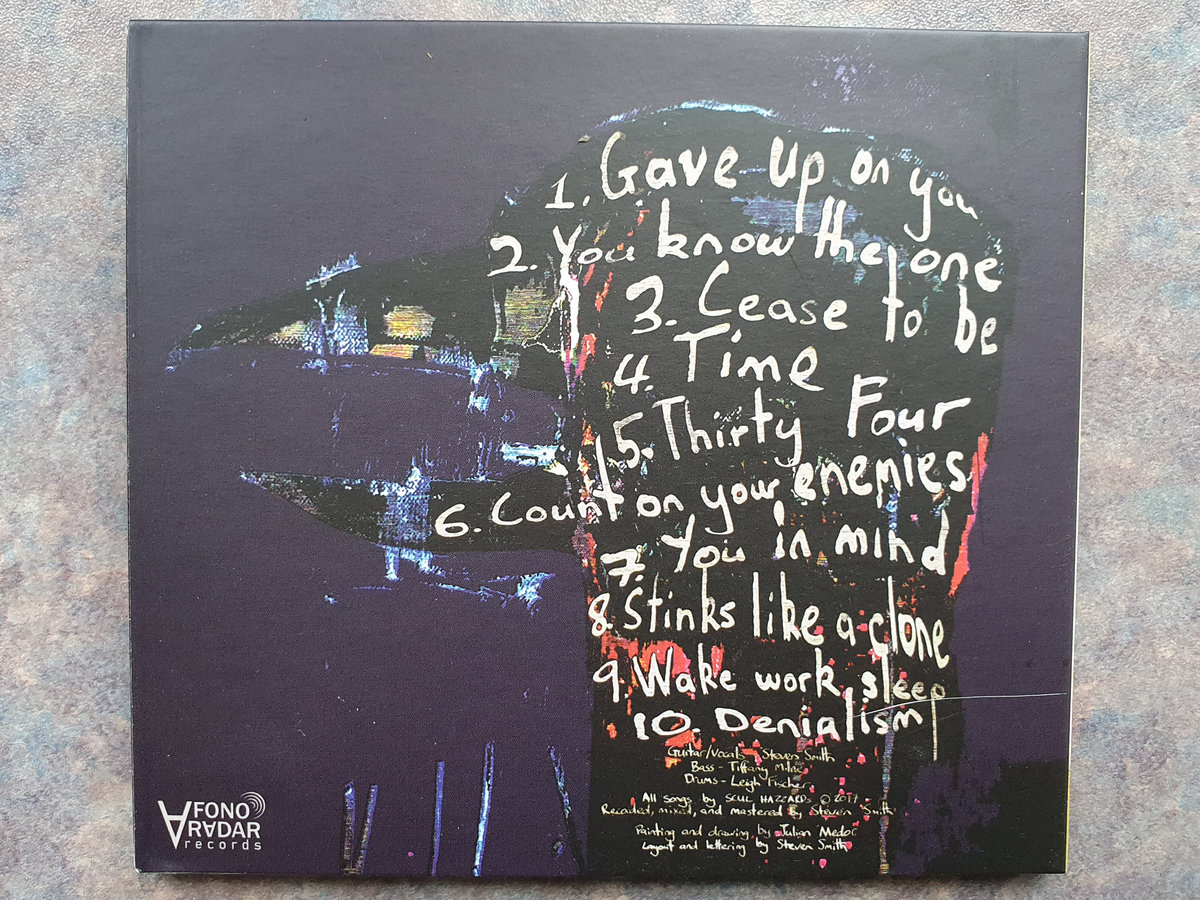 1. Gave up on you
2. You know the one
3. Cease to be
4. Time
5. Thirty Four
6. Count on your enemies
7. You in mind
8. Stinks like a clone
9. Wake work sleep
10. Denialism
Guitar/Vocals - Steven Smith
Bass - Tiffany Milne
Drums - Leigh Fischer
All songs by SCUL HAZZARDS © 2017
Recorded, mixed, and mastered by Steven Smith
Painting and drawing by Julian Medor
Layout and lettering by Steven Smith
AFONO
RADAR
records